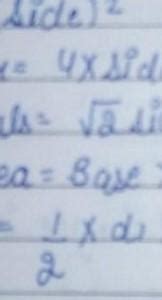 side)²
= 4×sid
ls= √2 si
ea = Base
= 1/2 × di